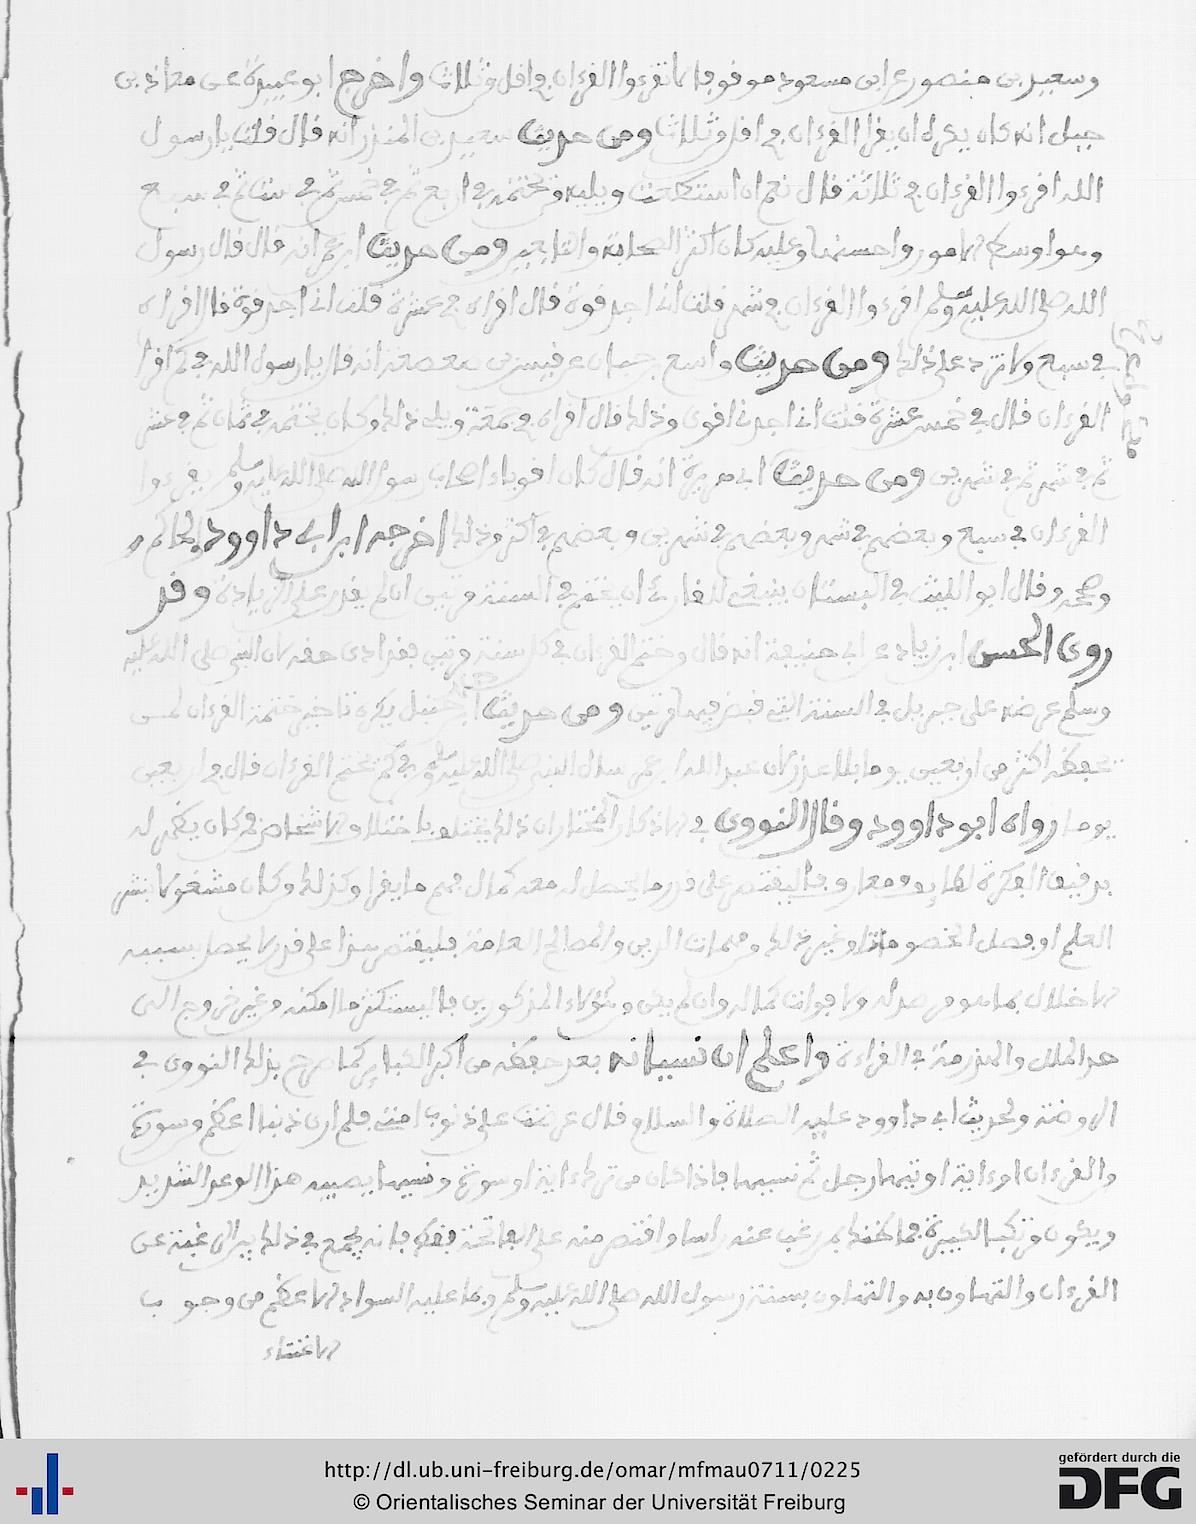 وسعيد بن منصور عن ابن مسعود موقوفا لا تقرءوا القرءان في اقل من ثلاث واخرج ابو عبيدة عن معاذ بن
جبل انه كان يكره ان يقرا القرءان في اقل من ثلاث ومن حديث سعيد بن المنذر انه قال قلت يا رسول
الله اقرءوا القرءان في ثلاثة قال نعم ان استطعت ويليه من ختمه في اربع ثم في خمس ثم في ست ثم في سبع
وهو اوسط الامور واحسنها وعليه كان اكثر الصحابة والتابعين ومن حديث ابن عمر انه قال قال رسول
الله صلى الله عليه وسلم اقرءوا القرءان في شهر قلت اني اجد قوة قال اقراه في عشرة قلت اني اجد قوة قال اقراه
في سبع ولا تزد على ذلك ومن حديث واسع بن حبان عن قيس بن صعصعة انه قال يا رسول الله في كم اقرا
القرءان قال في خمس عشرة قلت اني اجدني اقوى من ذلك قال اقراه في جمعة ويلي ذلك وكان يختمه في ثمان ثم في عشر
ثم في شهر ثم في شهرين ومن حديث ابي هريرة انه قال كان اقوياء اصحاب رسول الله صلى الله عليه وسلم يقرءوا
القرءان في سبع وبعضهم في شهر وبعضهم في شهرين وبعضهم في اكثر من ذلك اخرجه ابن ابي داوود والحاكم
وصححه وقال ابو الليث في البستان ينبغي للقارئ ان يختم في السنة مرتين ان لم يقدر على الزيادة وقد
روى الحسن ابن زياد عن ابي حنيفة انه قال من ختم القرءان في كل سنة مرتين فقد ادى حقه لان النبي صلى الله عليه
وسلم عرضه على جبريل في السنة التي قبض فيها مرتين ومن حديث ابن حنبل يكره تاخير ختمة القرءان لمن
يحفظه اكثر من اربعين يوما بلا عذر لان عبد الله ابن عمر سال النبي صلى الله عليه وسلم في كم نختم القرءان قال في اربعين
يوما رواه ابو داوود وقال النووي في الاذكار المختار ان ذلك يختلف باختلاف الاشخاص فمن كان يظهر له
بدقيق الفكرة لطايف ومعارف فاليقتصر على قدر ما يحصل له معه كمال فهم ما يقرا وكذلك من كان مشغولا بنشر
العلم او فصل الخصومات او غير ذلك من مهمات الدين والمصالح العامة فليقتصر هذا على قدر لا يحصل بسببه
الاخلال بما هو مرصد له ولا فوات كماله وان لم يكن من هؤلاء المذكورين فاليستكثر ما امكنه من غير خروج الى
حد الملل والهذرمة في القراءة واعلم ان نسيانه بعد حفظه من اكبر الكباير كما صرح بذلك النووي في
الروضة ولحديث ابي داوود عليه الصلاة والسلام قال عرضت علي ذنوب امتي فلم ار ذنبا اعظم من سورة
من القرءان او ءاية اوتيها رجل ثم نسيها فاذا كان من ترك ءاية او سورة ونسيها يصيبه هذا الوعد الشديد
ويكون مرتكب الكبيرة فما ظنك بمن رغب عنه راسا واقتصر منه على الفاتحة فقط فانه يجمع في ذلك بين الرغبة عن
القرءان والتهاون به والتهاون بسنة رسول الله صلى الله عليه وسلم وبما عليه السواد الاعظم من وجوب
الاعتناء
http://dl.ub.uni-freiburg.de/omar/mfmau0711/0225
© Orientalisches Seminar der Universität Freiburg
gefördert durch die
DFG